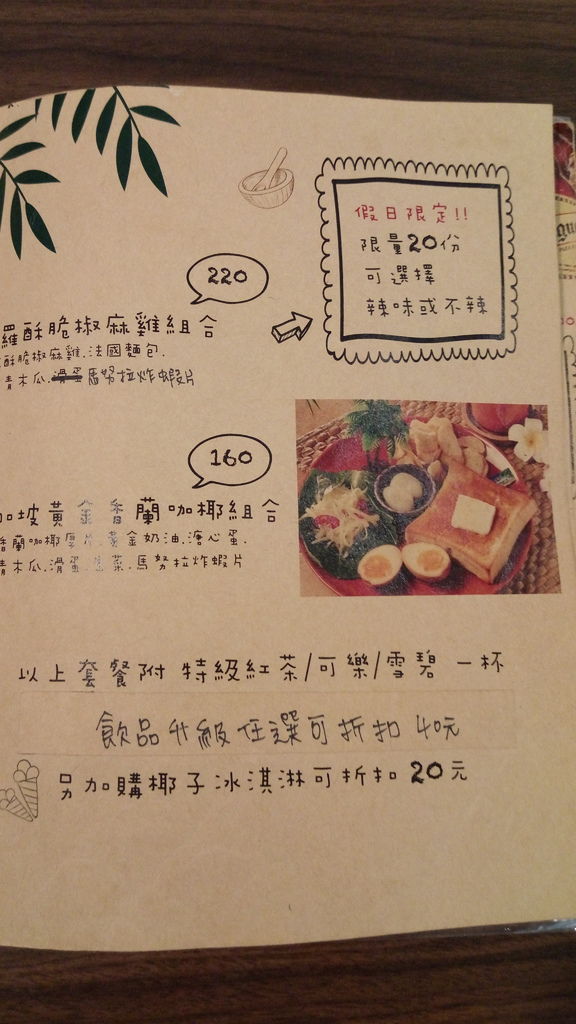 假日限定!!
限量20份
可選擇
辣味或不辣
220
羅酥脆椒麻雞組合
酥脆椒麻雞.法國麵包.
青木瓜.滑蛋馬努拉炸蝦片
160
加坡黃金香蘭咖椰組合
香蘭咖椰厚片.黃金奶油.溏心蛋.
青木瓜.滑蛋.生菜.馬努拉炸蝦片
以上套餐附 特級紅茶/可樂/雪碧 一杯
飲品升級任選可折扣 40元
另加購椰子冰淇淋可折扣 20元